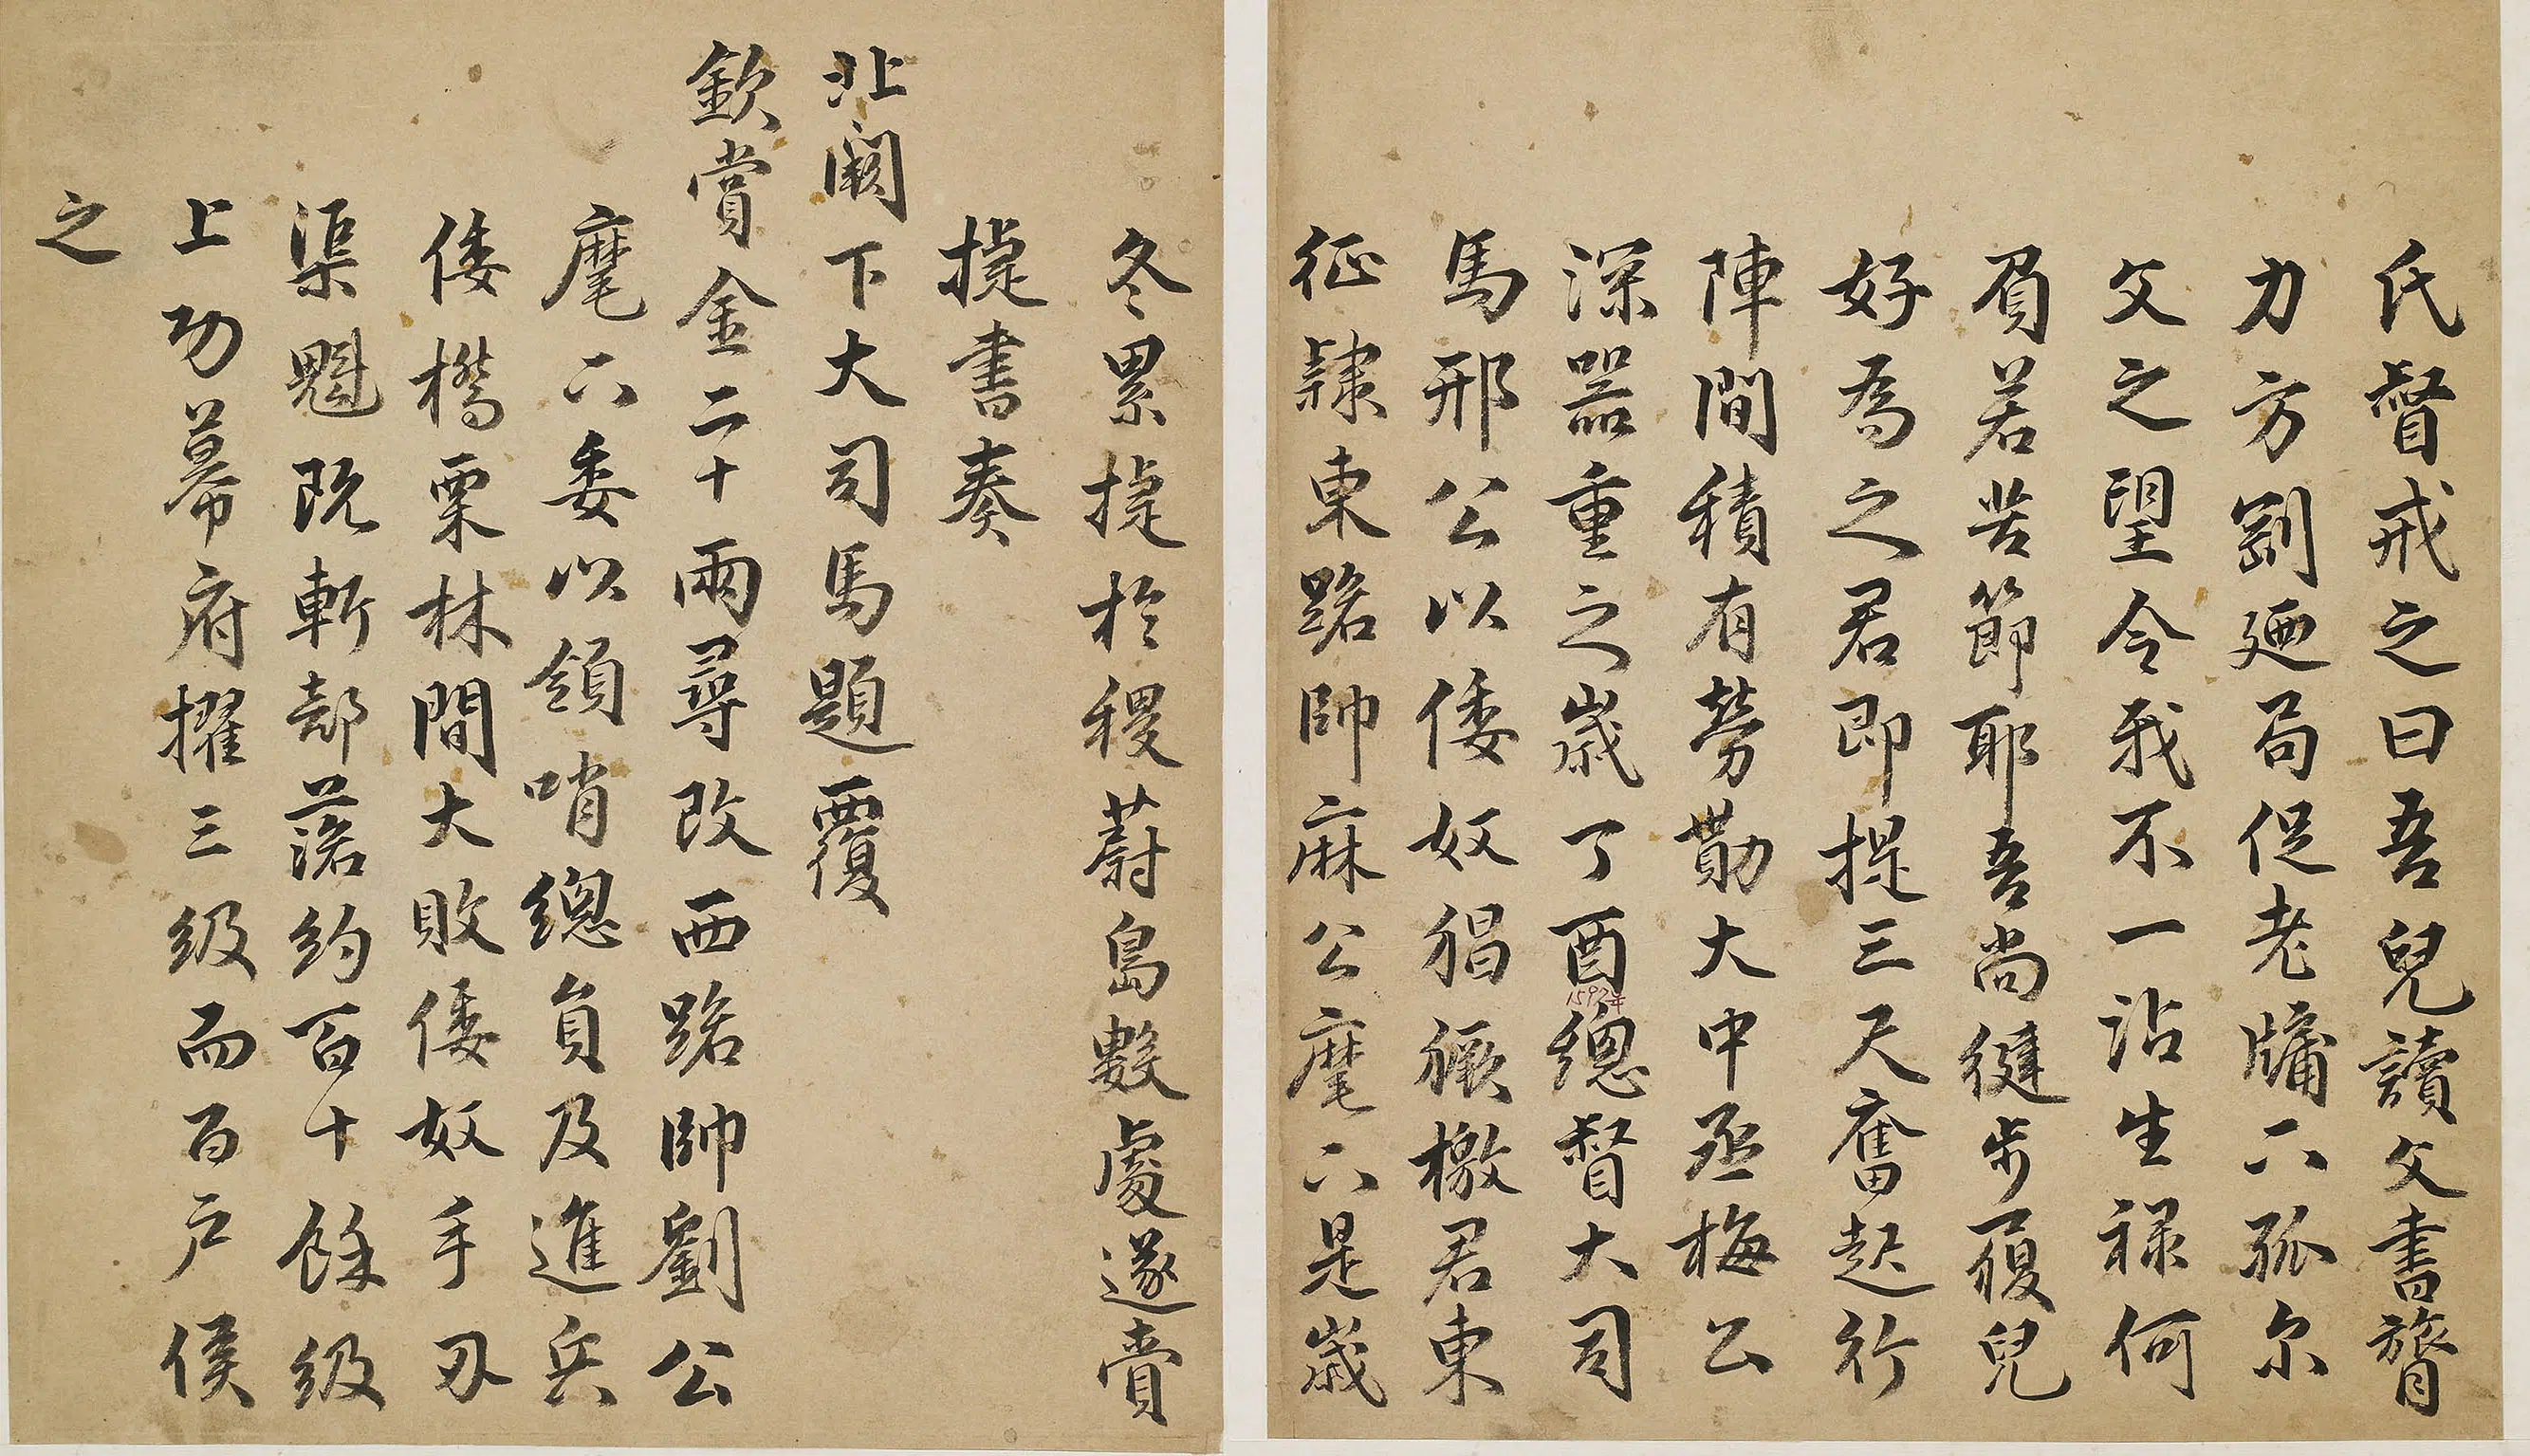 氏督戒之曰吾兒讀父書膂
力方剛廼局促老牖下孤尔
父之望令我不一沾生祿何
負若苦節耶吾尚健步履兒
好為之君即提三尺奮起行
陣間積有勞勩大中丞梅公
深器重之歲丁酉總督大司
1597年
馬邢公以倭奴猖獗檄君東
征隸東路帥麻公麾下是歲
冬累捷於稷蔚島數處遂賫
捷書奏
北闕下大司馬題覆
欽賞金二十兩尋改西路帥劉公
麾下委以領哨總負及進兵
倭橋栗林間大敗倭奴手刃
渠魁既斬部落約百十餘級
上功幕府擢三級而百戶侯
之